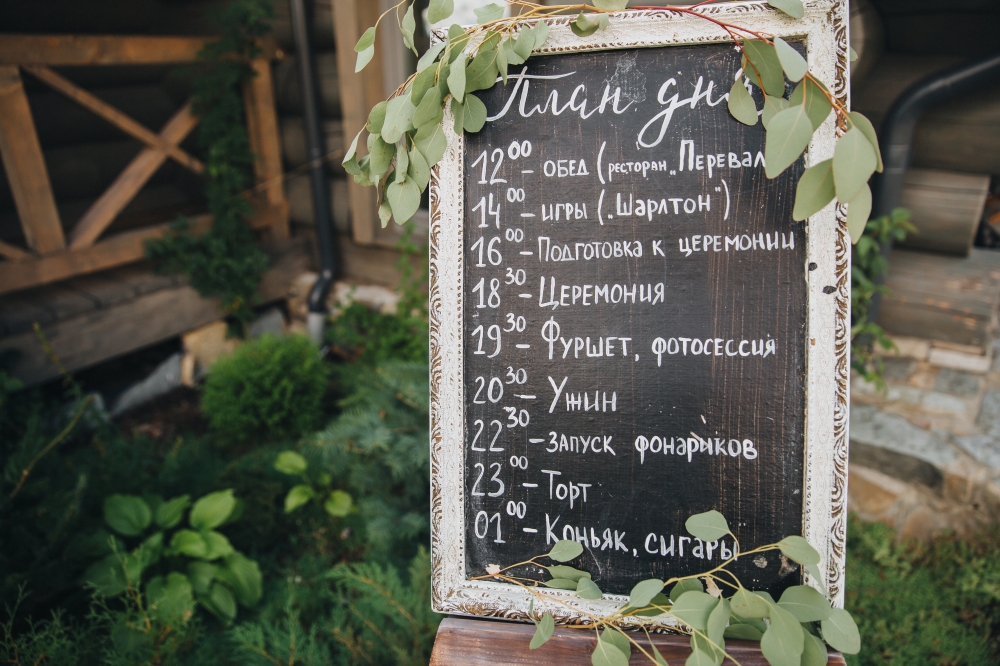 План дня
12⁰⁰ – обед (ресторан „Перевал
14⁰⁰ – игры („Шарлтон")
16⁰⁰ – Подготовка к церемонии
18³⁰ – Церемония
19³⁰ – Фуршет, фотосессия
20³⁰ – Ужин
22³⁰ – Запуск фонариков
23⁰⁰ – Торт
01⁰⁰ – Коньяк, сигары